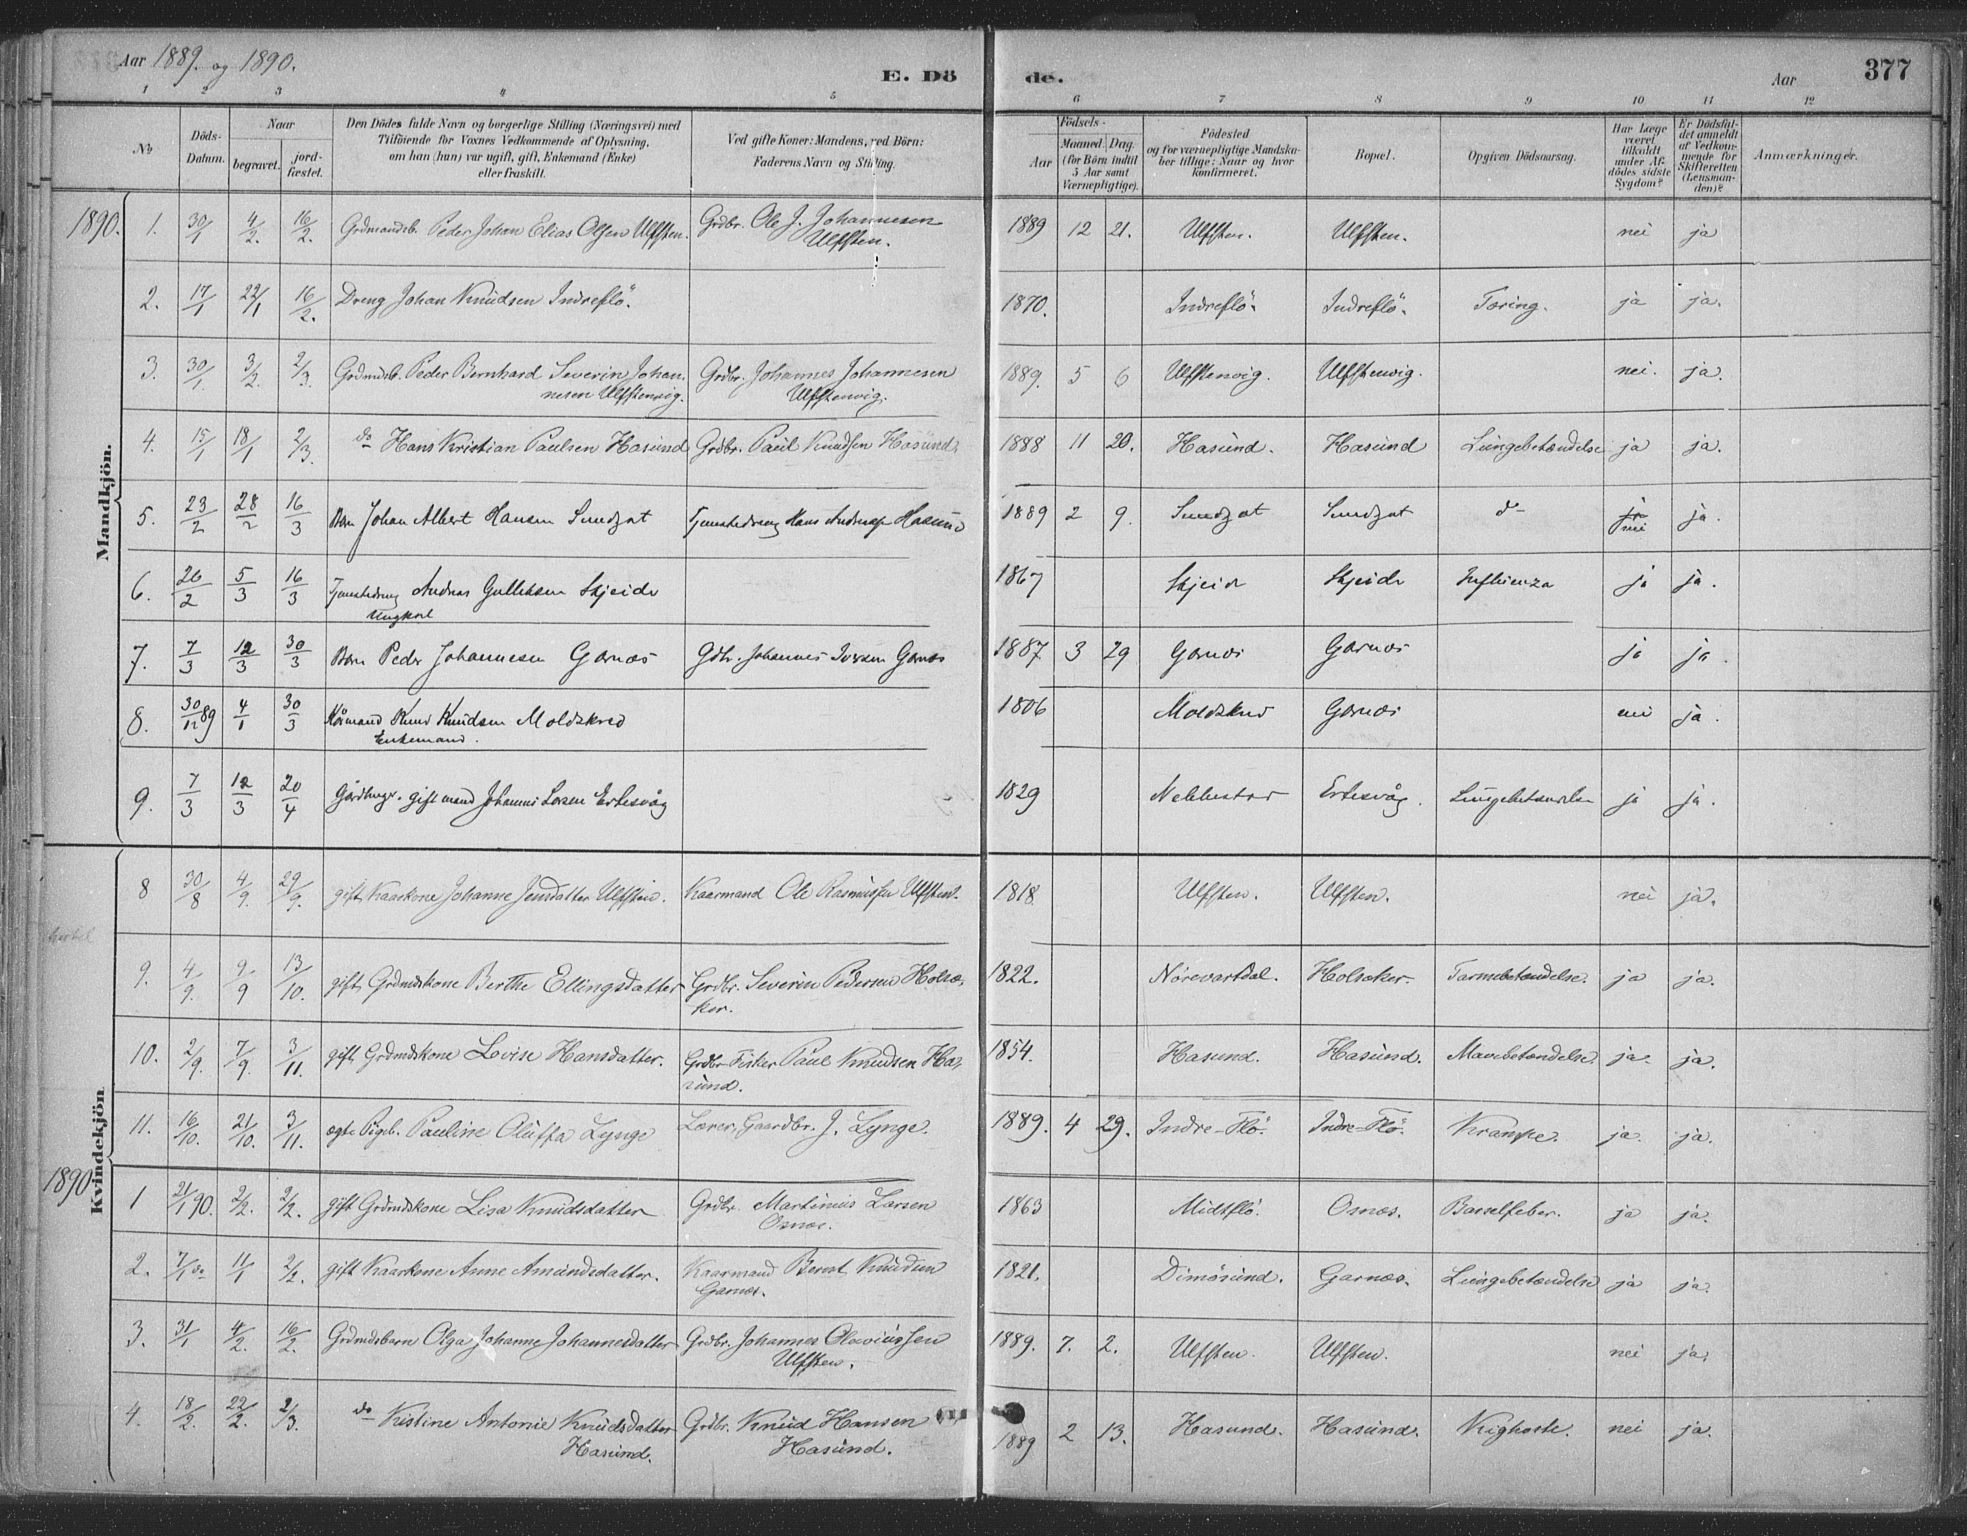 Aar 1889. og 1890.
E. Dö
de.
Aar
377
1 2 3 4 5 6 7 8 9 10 11 12
No
Döds-Datum.
Naar
begravet.
jord-fæstet.
Den Dödes fulde Navn og borgerlige Stilling (Næringsvei) med
Tilföiende for Voxnes Vedkommende af Oplysning,
om han (hun) var ugift, gift, Enkemand (Enke)
eller fraskilt.
Ved gifte Koner: Mandens, ved Börn:
Faderens Navn og Stilling.
Födsels-
Aar
Maaned. Dag.
(for Börn indtil
5 Aar samt
Værnepligtige).
Födested
og for værnepligtige Mandska-
ber tillige: Naar og hvor
konfirmeret.
Bopæl.
Opgiven Dödsaarsag.
Har Læge
været
tilkaldt
under Af-
dödes sidste
Sygdom?
Er Dödsfal-
det anmeldt
af Vedkom-
mende for
Skifteretten
(Lensman-
den)?
Anmærkninger.
Mandkjön.
1890. 1. 30/1 4/2. 16/2. Grdmandsb. Peder Johan Elias Olsen Ulfsten. Grdbr. Ole J. Johannesen 1889 12 21. Ulfsten. Ulfsten. nei ja
Ulfsten.
2. 17/1 22/1 16/2. Dreng Johan Knudsen Indreflö. 1870. Indreflö. Indreflö. Tæring. ja ja.
3. 30/1. 3/2. 2/3. Grdmdsb. Peder Bernhard Severin Johan- Grdbr. Johannes Johannesen 1889. 5 6 Ulfstenvig. Ulfstenvig. nei. ja.
nesen Ulfstenvig. Ulfstenvig.
4. 15/1 18/1 2/3. do Hans Kristian Paulsen Hasund Grdbr. Paul Knudsen Hasund. 1888 11 20. Hasund. Hasund Lungebetændelse ja ja.
5. 23/2 28/2 16/3 Barn Johan Albert Hansen Sundgot Tjenestedreng Hans Hasund 1889 2 9. Sundgot Sundgot d- ja nei ja.
6. 26/2 5/3 16/3 Tjenestedreng Andreas Gulleksen Skjeide 1867 Skjeide Skjeide Influenza ja ja.
Ungkarl
7. 7/3 12/3 30/3 Barn Peder Johannesen Garnæs Gdbr. Johannes Iversen Garnæs 1887 3 29 Garnæs Garnæs ja ja.
8. 30/12 89 4/1 30/3 Kårmand Knud Knudsen Moldskred 1806 Moldskred Garnæs nei ja.
Enkemand.
9. 7/3 12/3 20/4 Gårdbruger. gift mand Johannes Larsen Ertesvåg 1829 Nebbestad Ertesvåg. Lungebetændelse ja ja.
Kvindekjön
8 30/8 4/9. 29/9. gift Kaarkone Johanne Jensdatter Ulfsten. Kaarmand Ole Rasmussen Ulfsten. 1818 Ulfsten. Ulfsten. nei ja.
9. 4/9. 9/9 13/10. gift Grdmdskone Berthe Ellingsdatter Grdbr. Severin Pedersen Holsæ- 1822. Nörevartdal. Holsæker. Tarmebetændelse. ja ja.
ker.
10. 2/9. 7/9. 3/11. gift Grdmdskone Lovise Hansdatter. Grdbr. Fisker Paul Knudsen Ha- 1854. Hasund. Hasund. Mavebetændelse. ja. ja.
sund.
11. 16/10. 21/10. 3/11. ægte Pigeb. Pauline Oluffa Lynge Lærer, Gaardbr. J. Lynge. 1889. 4 29. Indre-Flö. Indre-Flö. Krampe. ja. ja.
1890 1 21/1 90. 2/2. 2/2. gift Grdmdskone Lisa Knudsdatter Grdbr. Martinus Larsen 1863 Midtflö. Osnæs. Barselfeber. ja ja.
Osnæs.
2. 7/1 do 11/1 2/2. gift Kaarkone Anne Amundsdatter. Kaarmand Bernt Knudsen 1821. Dimösund. Garnæs. Lungebetændelse ja ja.
Garnæs.
3. 31/1 4/2. 16/2. Grdmdsbarn Olga Johanne Johannesdatter Grdbr. Johannes Olaviussen 1889. 7. 2. Ulfsten. Ulfsten. nei ja.
Ulfsten.
4. 18/2. 22/2. 2/3. do Kistine Antonie Knudsdatter Grdbr. Knud Hansen 1889 2 13. Hasund. Hasund. Kighoste. nei ja.
Hasund. Hasund.